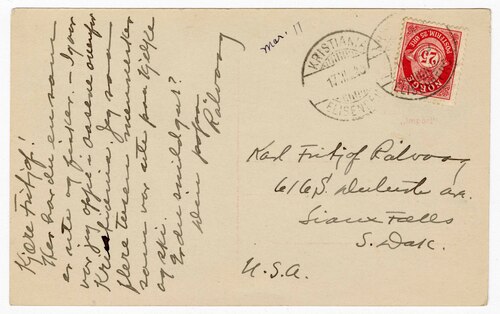 Kjære Fritjof!
Her har du en som
er ute og fisker. – Igaar
var jeg oppe i aasene ovenfor
Kristiania. Jeg saa
flere tusen mennesker
som var ute paa kjelke
og ski.
Er du snild gut?
Din papa
Rölvaag
Mar. 11
KRISTIANIA
ELISENBERG
NORGE
25
Karl Fritjof Rölvaag
616 S. Duluth ave.
Sioux Falls
S. Dak.
U.S.A.